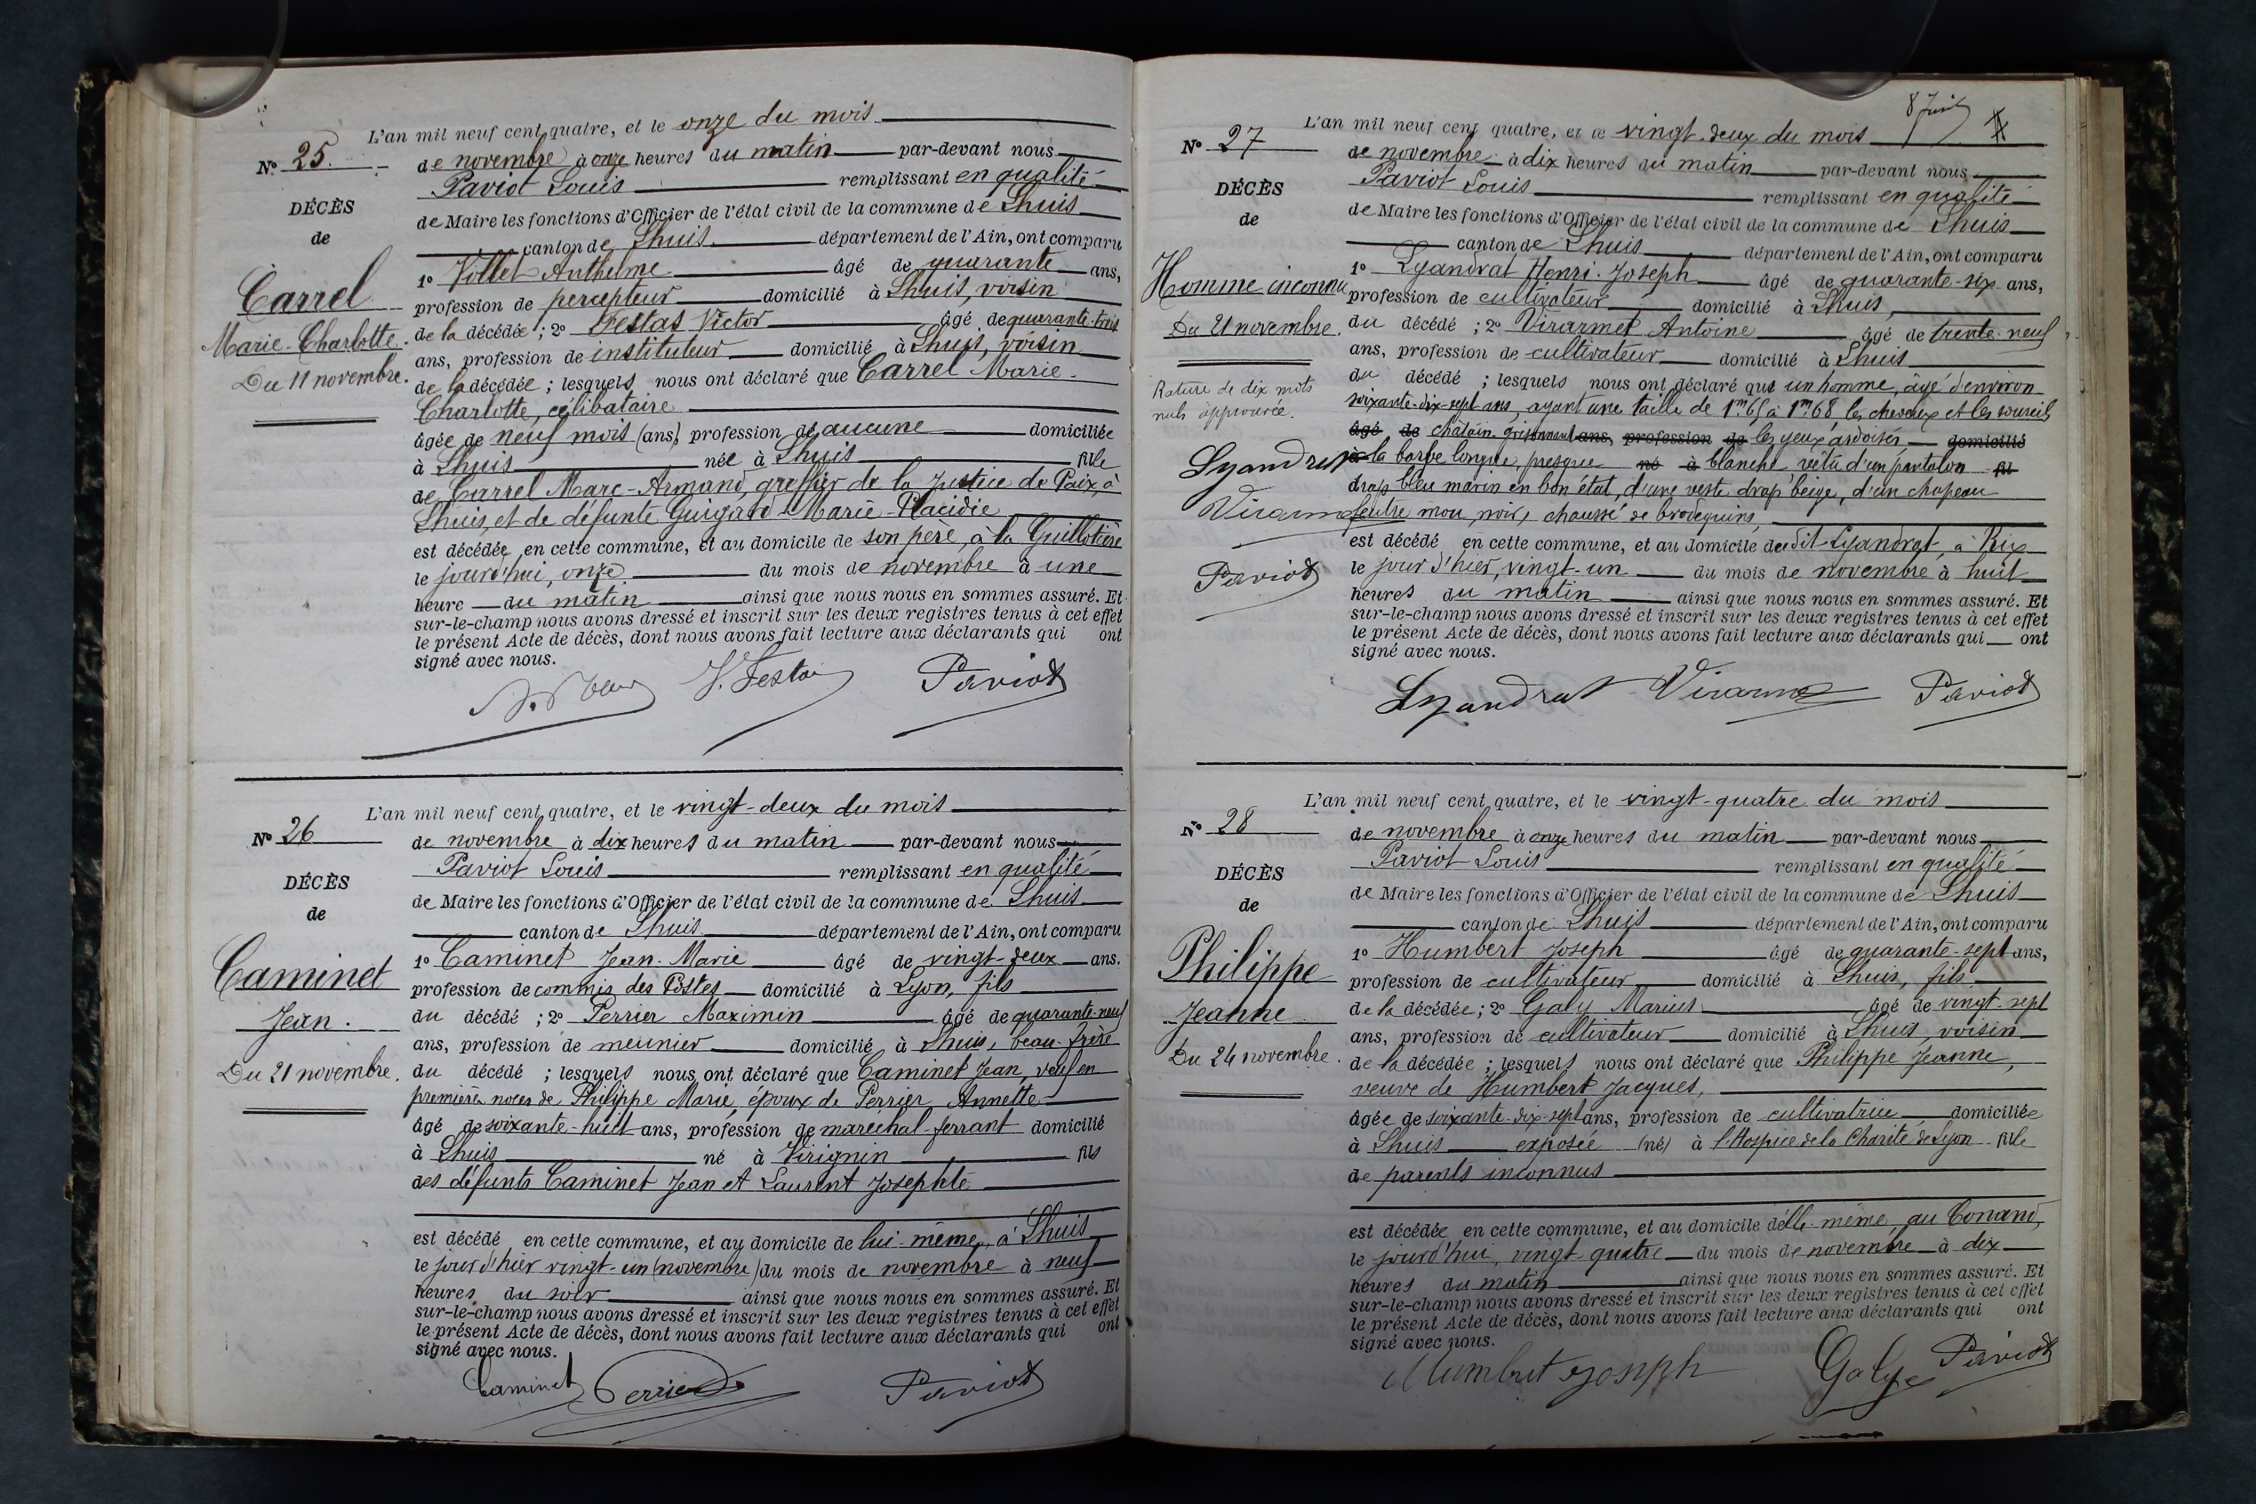 L'an mil neuf cent quatre, et le onze du mois
N° 25.
de novembre à onze heures du matin par-devant nous
Paviot Louis remplissant en qualité
DÉCÈS
de Maire les fonctions d'Officier de l'état civil de la commune de Lhuis
de
canton de Lhuis département de l'Ain, ont comparu
1° Vollet Anthelme âgé de quarante ans,
Carrel
profession de percepteur domicilié à Lhuis, voisin
Marie-Charlotte.
de la décédée ; 2° Festas Victor âgé de quarante-trois
ans, profession de instituteur domicilié à Lhuis, voisin
Du 11 novembre.
de la décédée ; lesquels nous ont déclaré que Carrel Marie-
Charlotte, célibataire
âgée de neuf mois (ans) profession de aucune domiciliée
à Lhuis née à Lhuis fille
de Carrel Marc-Armand, greffier de la Justice de Paix, à
Lhuis, et de défunte Guigard Marie-Placidie
est décédée en cette commune, et au domicile de son père, à la Guillotière
le jourd'hui, onze du mois de novembre à une
heure du matin ainsi que nous nous en sommes assuré. Et
sur-le-champ nous avons dressé et inscrit sur les deux registres tenus à cet effet
le présent Acte de décès, dont nous avons fait lecture aux déclarants qui ont
signé avec nous.
V. Festas Paviot
L'an mil neuf cent quatre, et le vingt-deux du mois
N° 26
de novembre à dix heures du matin par-devant nous
Paviot Louis remplissant en qualité
DÉCÈS
de Maire les fonctions d'Officier de l'état civil de la commune de Lhuis
de
canton de Lhuis département de l'Ain, ont comparu
1° Caminet Jean-Marie âgé de vingt-deux ans.
Caminet
profession de commis des Postes domicilié à Lyon, fils
Jean.
du décédé ; 2° Perrier Maximin âgé de quarante-neuf
ans, profession de meunier domicilié à Lhuis, beau-frère
Du 21 novembre.
du décédé ; lesquels nous ont déclaré que Caminet Jean, veuf en
premières noces de Philippe Marie, époux de Perrier Annette
âgé de soixante-huit ans, profession de maréchal-ferrant domicilié
à Lhuis né à Virignin fils
des défunts Caminet Jean et Laurent Josephte
est décédé en cette commune, et au domicile de lui-même, à Lhuis
le jour d'hier vingt-un (novembre) du mois de novembre à neuf
heures du soir ainsi que nous nous en sommes assuré. Et
sur-le-champ nous avons dressé et inscrit sur les deux registres tenus à cet effet
le présent Acte de décès, dont nous avons fait lecture aux déclarants qui ont
signé avec nous.
Caminet Perrier Paviot
8 Juin
L'an mil neuf cent quatre, et le vingt-deux du mois
N° 27
de novembre à dix heures du matin par-devant nous
Paviot Louis remplissant en qualité
DÉCÈS
de Maire les fonctions d'Officier de l'état civil de la commune de Lhuis
de
canton de Lhuis département de l'Ain, ont comparu
1° Lyandrat Henri-Joseph âgé de quarante-six ans,
Homme inconnu
profession de cultivateur domicilié à Lhuis,
Du 21 novembre.
du décédé ; 2° Virarmet Antoine âgé de trente-neuf
ans, profession de cultivateur domicilié à Lhuis
Rature de dix mots
nuls approuvée.
du décédé ; lesquels nous ont déclaré que un homme, âgé d'environ
soixante-dix-sept ans, ayant une taille de 1m65 à 1m68, les cheveux et les sourcils
âgé de châtain grisonnant ans, profession de les yeux ardoisés domicilié
Lyandrat
à la barbe longue, presque né à blanche vêtu d'un pantalon fil
drap bleu marin en bon état, d'une veste drap beige, d'un chapeau
Virarmet
feutre mou, noir, chaussé de brodequins,
est décédé en cette commune, et au domicile dudit Lyandrat, à Rix
Paviot
le jour d'hier, vingt-un du mois de novembre à huit
heures du matin ainsi que nous nous en sommes assuré. Et
sur-le-champ nous avons dressé et inscrit sur les deux registres tenus à cet effet
le présent Acte de décès, dont nous avons fait lecture aux déclarants qui ont
signé avec nous.
Lyandrat Virarmet Paviot
L'an mil neuf cent quatre, et le vingt-quatre du mois
N° 28
de novembre à onze heures du matin par-devant nous
Paviot Louis remplissant en qualité
DÉCÈS
de Maire les fonctions d'Officier de l'état civil de la commune de Lhuis
de
canton de Lhuis département de l'Ain, ont comparu
1° Humbert Joseph âgé de quarante-sept ans,
Philippe
profession de cultivateur domicilié à Lhuis, fils
Jeanne
de la décédée ; 2° Galy Marius âgé de vingt-sept
ans, profession de cultivateur domicilié à Lhuis, voisin
Du 24 novembre.
de la décédée ; lesquels nous ont déclaré que Philippe Jeanne,
veuve de Humbert Jacques,
âgée de soixante-dix-sept ans, profession de cultivatrice domiciliée
à Lhuis exposée (né) à l'Hospice de la Charité de Lyon fille
de parents inconnus
est décédée en cette commune, et au domicile d'elle-même, au Conand,
le jourd'hui, vingt-quatre du mois de novembre à dix
heures du matin ainsi que nous nous en sommes assuré. Et
sur-le-champ nous avons dressé et inscrit sur les deux registres tenus à cet effet
le présent Acte de décès, dont nous avons fait lecture aux déclarants qui ont
signé avec nous.
Humbert Joseph Galy Paviot